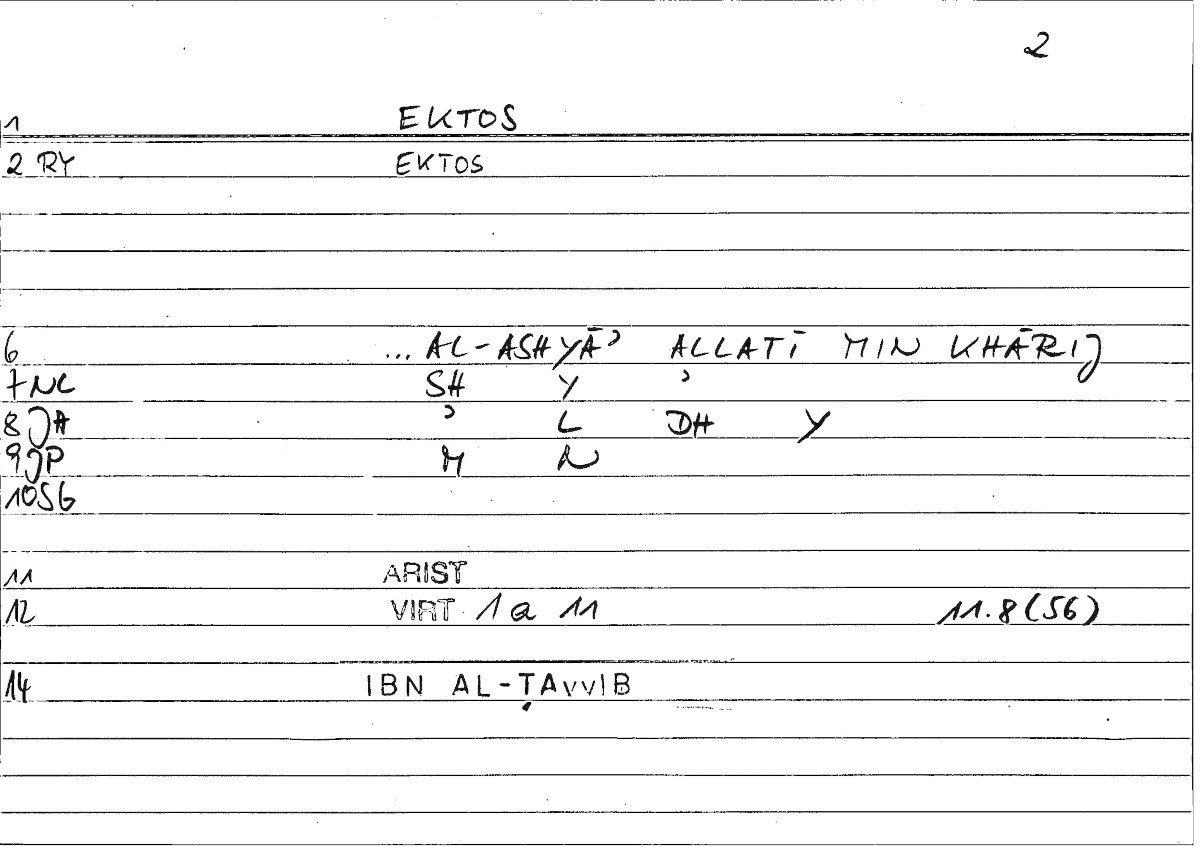 2
1 EKTOS
2 RY EKTOS
6 ... AL-ASHYĀʾ ALLATĪ MIN KHĀRIJ
7 NC SH Y ʾ
8 JA ʾ L DH Y
9 JP M N
10 SG
11 ARIST
12 VIRT 1 a 11 11.8 (56)
14 IBN AL-ṬAYYIB